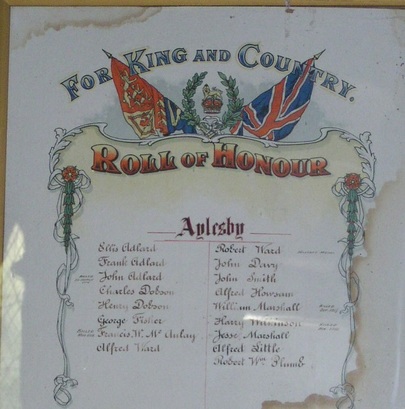 FOR KING AND COUNTRY.
ROLL OF HONOUR
Aylesby
Ellis Adlard
Frank Adlard
John Adlard
Charles Dobson
Henry Dobson
George Fisher
Francis W. Mc Aulay
Alfred Ward
Robert Ward
John Davy
John Smith
Alfred Howsam
William Marshall
Harry Wilkinson
Jesse Marshall
Alfred Little
Robert Wm Plumb